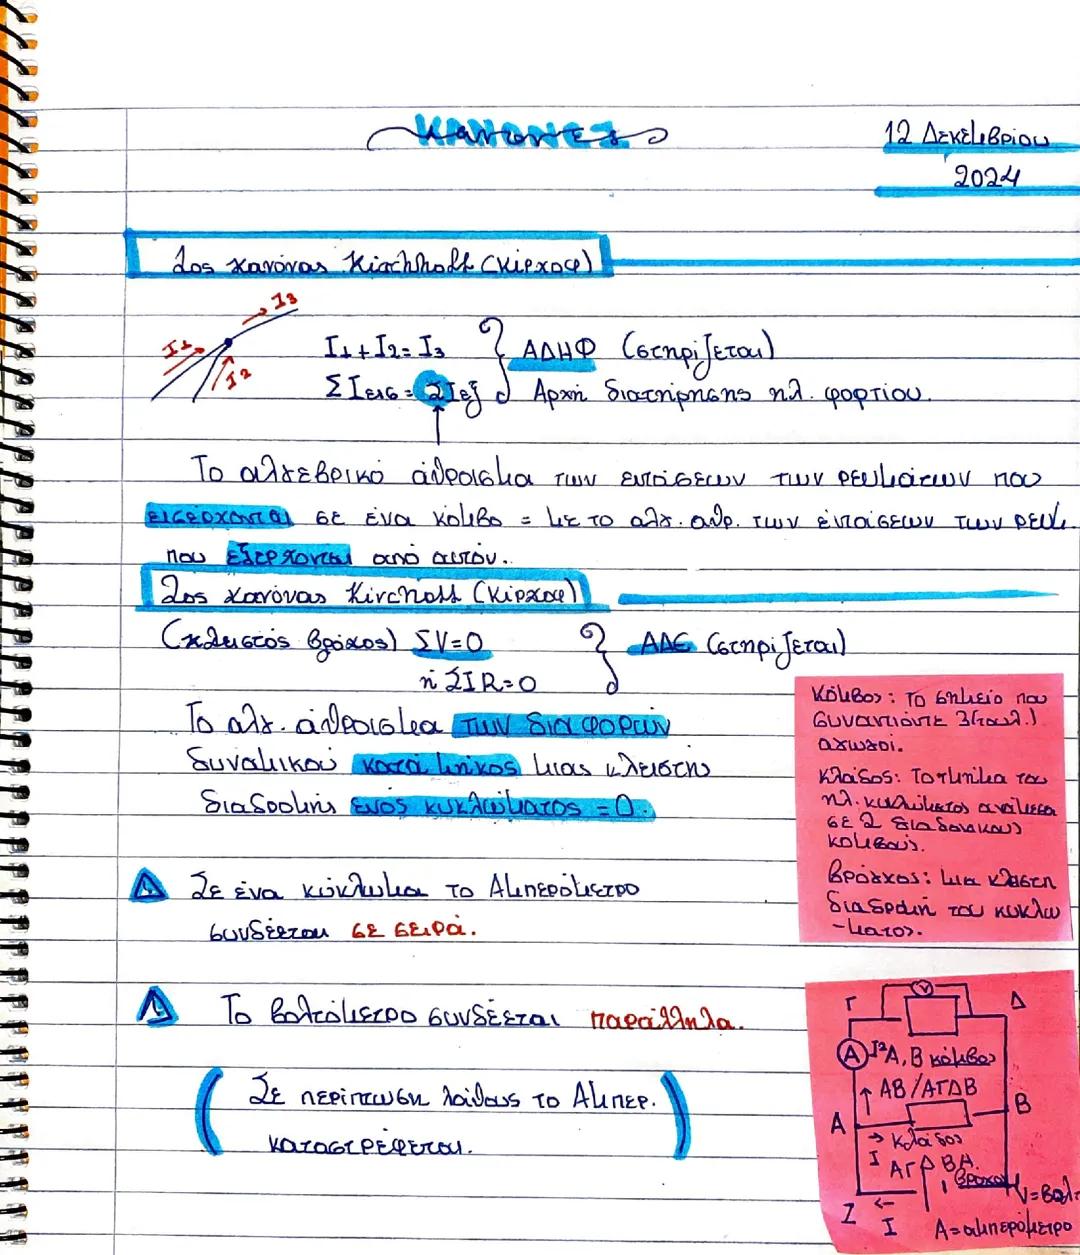 ΚΑΝΟΝΕΣ
12 Δεκεμβρίου
2024
1ος κανόνας Kirchhoff (Κίρχοφ)
I3
I1
I2
I1+I2=I3
ΑΔΗΦ (στηρίζεται)
ΣIεισ=ΣIεξ
Αρχή διατήρησης ηλ. φορτίου.
Το αλγεβρικό άθροισμα των εντάσεων των ρευμάτων που
εισέρχονται σε ένα κόμβο = με το αλγ. αθρ. των εντάσεων των ρευμ.
που εξέρχονται από αυτόν.
2ος κανόνας Kirchoff (Κίρχοφ)
(κλειστός βρόχος) ΣV=0
ΑΔΕ (στηρίζεται)
ή ΣIR=0
Το αλγ. άθροισμα των διαφορών
δυναμικού κατά μήκος μιας κλειστής
διαδρομής ενός κυκλώματος = 0.
Κόμβος: Το σημείο που
συναντιόντε 3(τουλ.)
αγωγοί.
Κλάδος: Το τμήμα του
ηλ. κυκλώματος ανάμεσα
σε 2 διαδοχικούς
κόμβους.
Βρόγχος: μια κλειστη
διαδρομή του κυκλώ
-ματος.
Σε ένα κύκλωμα το Αμπερόμετρο
συνδέεται σε σειρά.
Το βολτόμετρο συνδέεται παράλληλα.
(Σε περίπτωση λάθους το Αμπερ.
καταστρέφεται.)
Γ V Δ
A A, B κόμβος
ΑΒ/ΑΓΔΒ
A B
→ κλάδος
I ΑΓΔΒΑ
βρόχος
V=βολτ
Ζ ← I
A=αμπερόμετρο